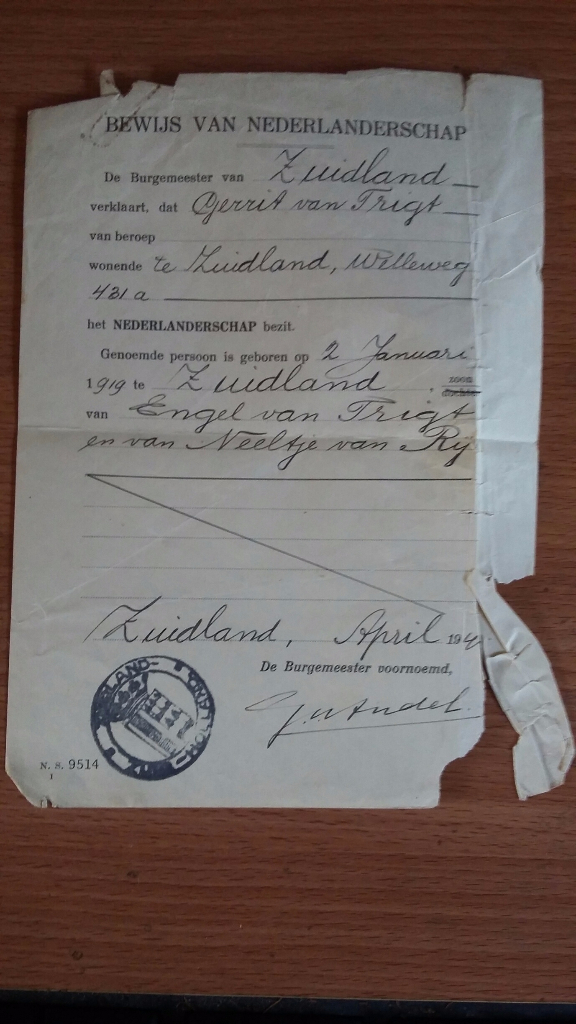 BEWIJS VAN NEDERLANDERSCHAP
De Burgemeester van Zuidland
verklaart, dat Gerrit van Trigt
van beroep
wonende te Zuidland, Welleweg
431a
het NEDERLANDERSCHAP bezit.
Genoemde persoon is geboren op 2 Januari
1919 te Zuidland zoon
dochter
van Engel van Trigt
en van Neeltje van Rij
Zuidland, April 194
De Burgemeester voornoemd,
N. S. 9514
1